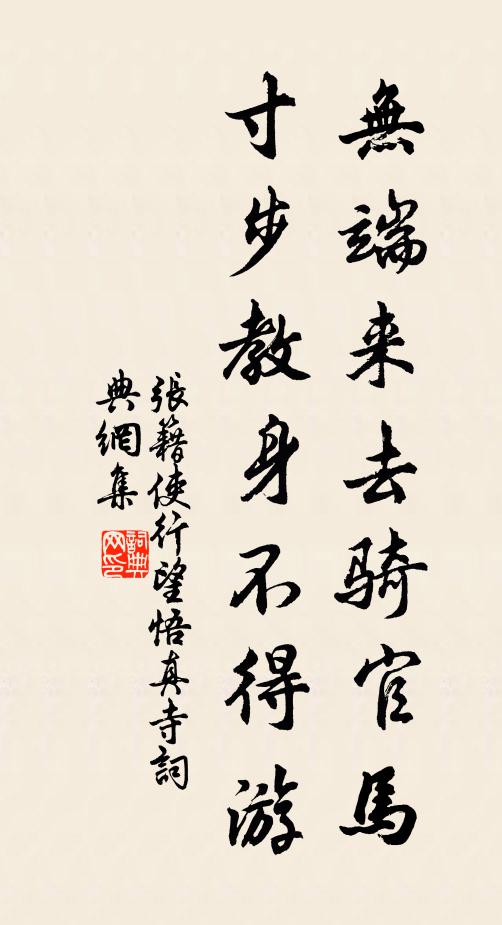 無端来去骑官馬
寸步教身不得游
張籍使行望悟真寺詞
典網集
詞典网印